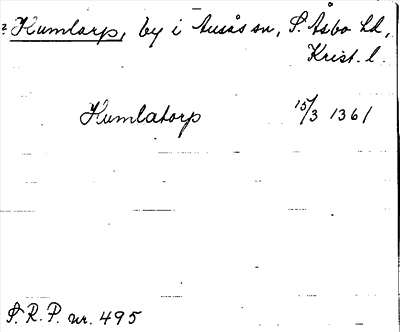 ? Humlarp, by i Ausås sn, S. Åsbo hd,
Krist. l.
Humlatorp 15/3 1361
S. R. P. nr. 495